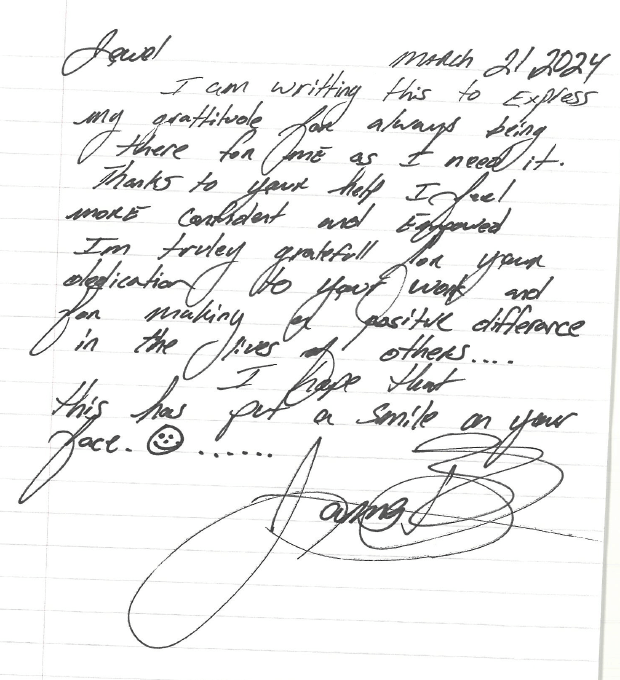 Jewel March 21, 2024
I am writting this to Express
my grattitude for always being
there for me as I need it.
Thanks to your help I feel
more confident and Empowed
I'm truley gratefull for your
dedication to your work and
for making a positive difference
in the lives of others....
I hope that
this has put a smile on your
face. ☺ ......